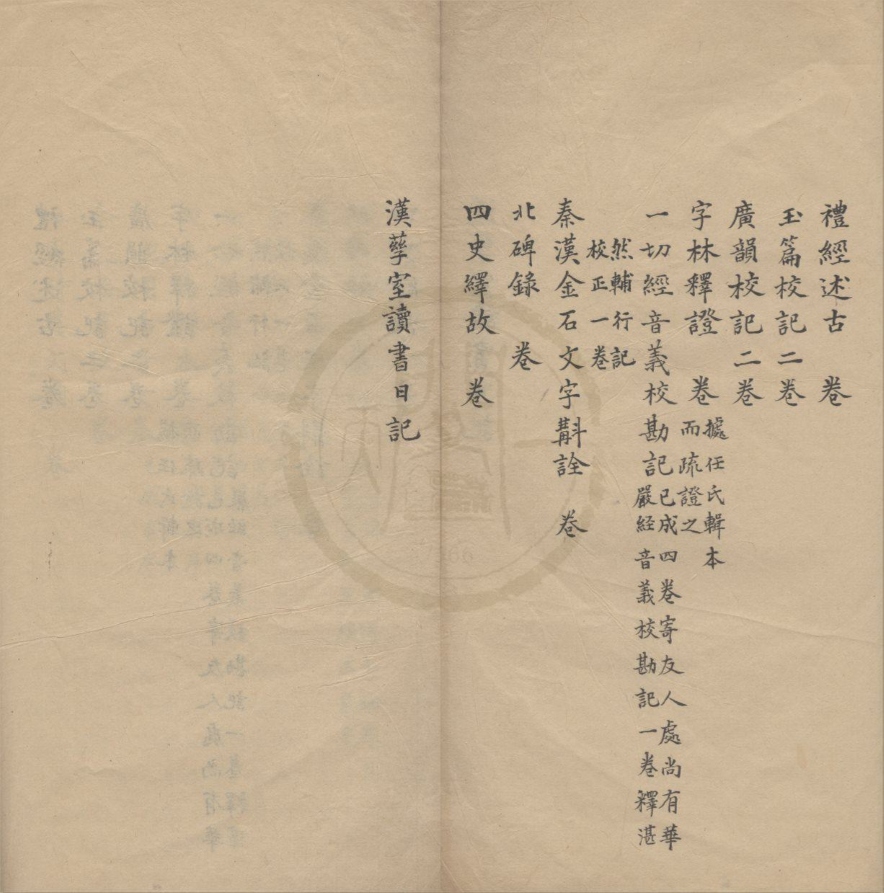 禮經述古　卷
玉篇校記二卷
廣韻校記二卷
字林釋證　卷據任氏輯本而疏證之
一切經音義校勘記已成四卷寄友人處尚有華嚴經音義校勘記一卷釋湛
然輔行記校正一卷
秦漢金石文字斠詮　卷
北碑錄　卷
四史繹故　卷
漢孳室讀書日記